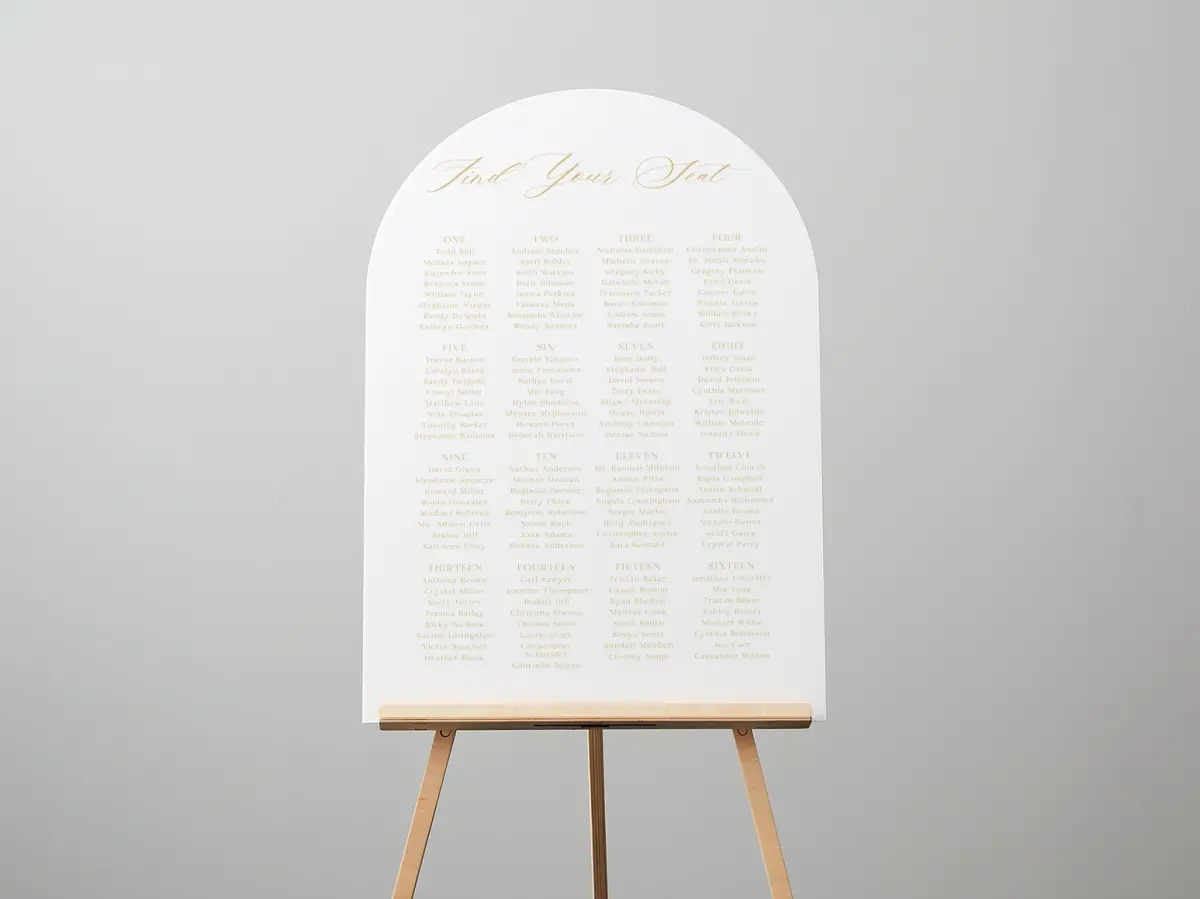 Find Your Seat
ONE
Todd
Melissa Snyder
Alejandro
Rebecca
William Taylor
Stephanie
Randy Delgado
Kathryn Gardner
TWO
Andrew Sanchez
April Robles
Keith Watkins
Ruth Johnson
James Perkins
Vanessa
Benjamin Wheeler
Wendy Sanders
THREE
Nicholas Hamilton
Michelle Graves
Gregory Kirby
Gabrielle
Francisco Tucker
Karen
Andrew Jones
Natasha Scott
FOUR
Christopher Austin
Dr. Sheila Morales
Gregory
Erica Davis
Connor
Pamela
William Brown
Kerri Jackson
FIVE
Trevor Burton
Carolyn
Randy Delgado
Cheryl Miller
Matthew Lane
Judy Douglas
Timothy Barker
Stephanie Williams
SIX
Donald Vasquez
Jamie Fernandez
Nathan
Mia Yang
Dylan Simmons
Melissa Mcpherson
Howard Perez
Deborah Harrison
SEVEN
John
Stephanie Bell
David
Terry Evans
Shawn Mccarthy
Megan Harris
Anthony Chandler
Denise Nichols
EIGHT
Jeffrey
Erica Davis
David Johnson
Cynthia Martinez
Eric West
Kristen Edwards
William Mcbride
Jennifer Davis
NINE
David Green
Stephanie Spencer
Howard Miller
Bobby Gonzalez
Michael Sullivan
Ms. Allison Ortiz
Joshua Hill
Kathleen Foley
TEN
Nathan Anderson
Melissa Duncan
Reginald
Betty Olson
Benjamin Roberson
Nicole
John Adams
Melissa Anderson
ELEVEN
Mr. Randall Mitchell
Amber
Reginald Thompson
Angela Cunningham
Sergio Martin
Holly Rodriguez
Christopher Austin
Sara Bennett
TWELVE
Jonathan
Kayla Campbell
Austin Schmidt
Samantha Richmond
Austin Brown
Nichole Foster
Scott
Crystal Perry
THIRTEEN
Anthony Brown
Crystal Miller
Scott
Jessica Bailey
Ricky Nichols
Natalie Livingston
Victor Sanchez
Heather Black
FOURTEEN
Carl Sawyer
Jennifer Thompson
Joshua Hill
Christina Owens
Theresa Smith
Laurie Stark
Christopher
Schneider
Gabrielle
FIFTEEN
Tristan Baker
Cassie Bishop
Ryan Shelton
Melissa Cook
Scott Smith
Sonya Scott
Randall Mitchell
Chelsey Singh
SIXTEEN
Jonathan Gonzalez
Mia Yang
Tristan Baker
Ashley Rivera
Michael White
Cynthia Robinson
Joe Carr
Cassandra Wilson